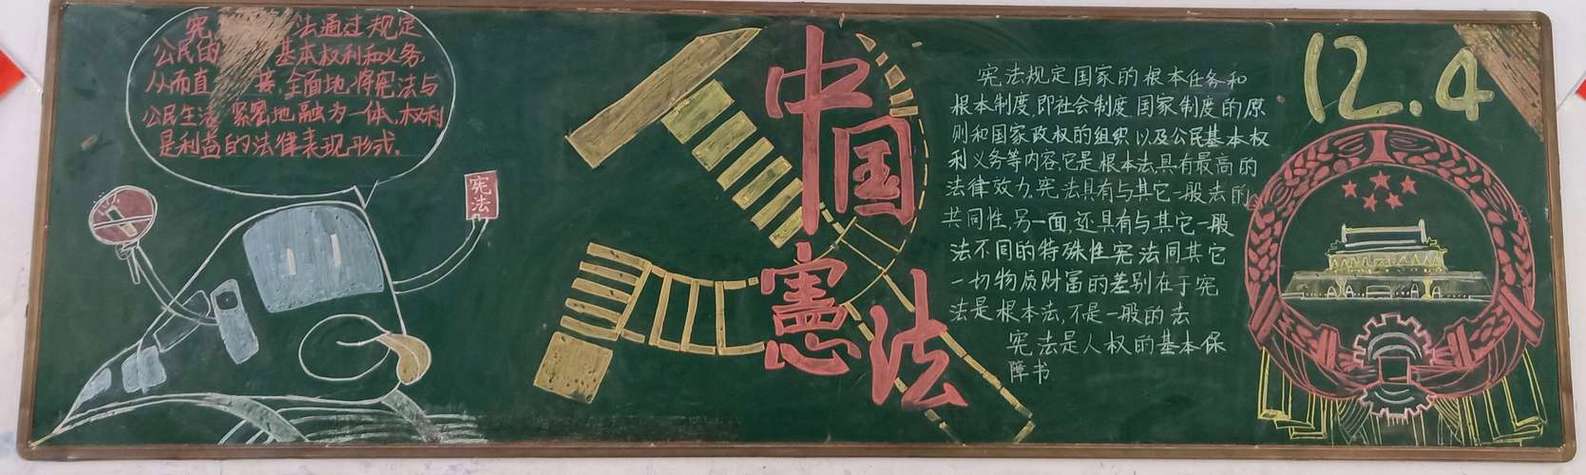 宪法通过规定
公民的基本权利和义务,
从而直接、全面地将宪法与
公民生活紧密地融为一体,权利
是利益的法律表现形式。
宪法
中国
憲法
宪法规定国家的根本任务和
根本制度,即社会制度,国家制度的原
则和国家政权的组织以及公民基本权
利义务等内容,它是根本法,具有最高的
法律效力。宪法具有与其它一般法的
共同性,另一面,还具有与其它一般
法不同的特殊性宪法同其它
一切物质财富的差别在于宪
法是根本法,不是一般的法
宪法是人权的基本保
障书
12.4